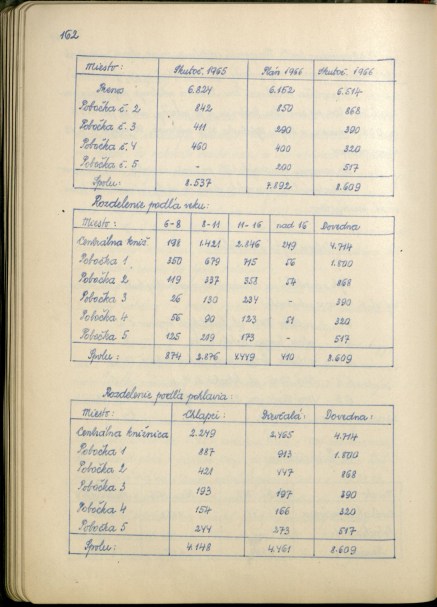 162
Miesto: Skutoč. 1965 Plán 1966 Skutoč. 1966
Prenos 6.824 6.152 6.514
Pobočka č. 2 842 850 868
Pobočka č. 3 411 290 390
Pobočka č. 4 460 400 320
Pobočka č. 5 - 200 517
Spolu: 8.537 7.892 8.609
Rozdelenie podľa veku:
Miesto: 6-8 8-11 11-16 nad 16 Dovedna
Centrálna kniž. 198 1.421 2.846 249 4.714
Pobočka 1 350 679 715 56 1.800
Pobočka 2 119 337 358 54 868
Pobočka 3 26 130 234 - 390
Pobočka 4 56 90 123 51 320
Pobočka 5 125 219 173 - 517
Spolu: 874 2.876 410 8.609
Rozdelenie podľa pohlavia:
Miesto: Chlapci: Dievčatá: Dovedna:
Centrálna knižnica 2.249 2.465 4.714
Pobočka 1 887 913 1.800
Pobočka 2 421 447 868
Pobočka 3 193 197 390
Pobočka 4 154 166 320
Pobočka 5 244 273 517
Spolu: 4.148 4.461 8.609